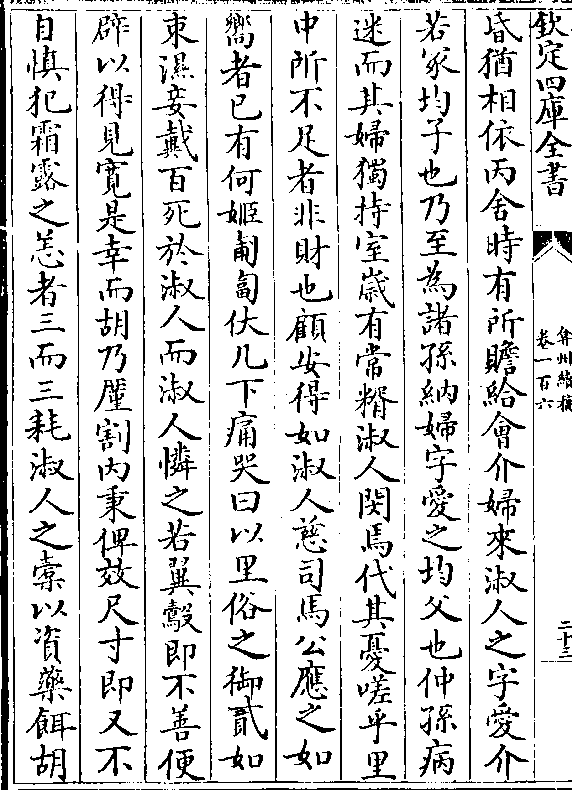 欽定四庫全書
弇州續稿
卷一百六
二十三
昏猶相依丙舍時有所贍給會介婦來淑人之字愛介
若冢均子也乃至為諸孫納婦字愛之均父也仲孫病
迷而其婦獨持室嵗有常糈淑人閔焉代其憂嗟乎里
中所不足者非財也顧安得如淑人慈司馬公應之如
嚮者已有何姬匍匐伏几下痛哭曰以里俗之御貳如
束濕妾戴百死於淑人而淑人憐之若翼鷇即不善便
辟以得見寛是幸而胡乃廑割内秉俾效尺寸即又不
自慎犯霜露之恙者三而三耗淑人之槖以資藥餌胡